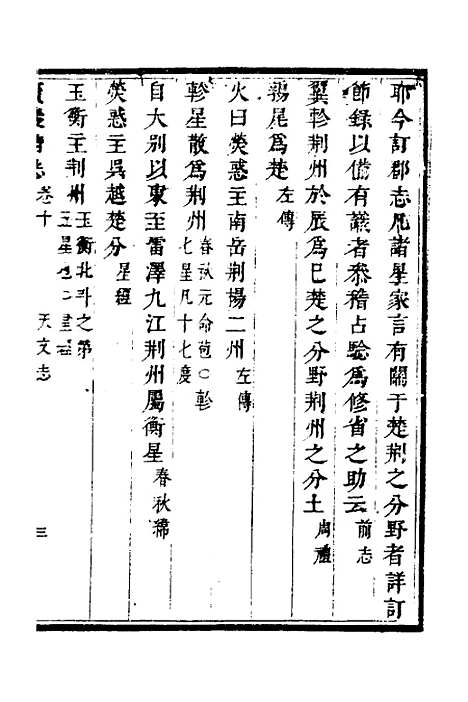 耶今訂郡志凡諸星家言有關于楚荆之分野者詳訂
節錄以備有識者叅稽占驗爲修省之助云前志
翼軫荆州於辰爲巳楚之分野荆州之分土周禮
鶉尾爲楚左傳
火曰熒惑主南岳荆揚二州左傳
軫星散爲荆州春秋元命苞○軫
七星凡十七度
自大别以東至雷澤九江荆州屬衡星春秋緯
熒惑主吳越楚分星經
玉衡主荆州玉衡北斗之第
五星也
志 卷十 天文志 三